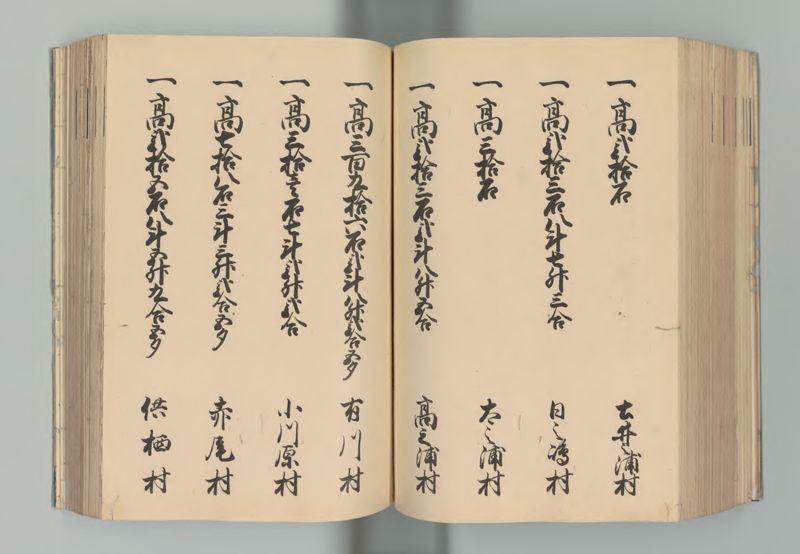 一 高弐拾石 土井之浦村
一 高弐拾三石八斗七升三合 日之嶋村
一 高三拾石 太之浦村
一 高弐拾三石弐斗八升五合 高之浦村
一 高三百九拾六石弐斗八升弐合五夕 有川村
一 高三拾壱石七斗弐升弐合 小川原村
一 高七拾八石三斗三升弐合五夕 赤尾村
一 高弐拾五石八斗五升九合五夕 供栖村